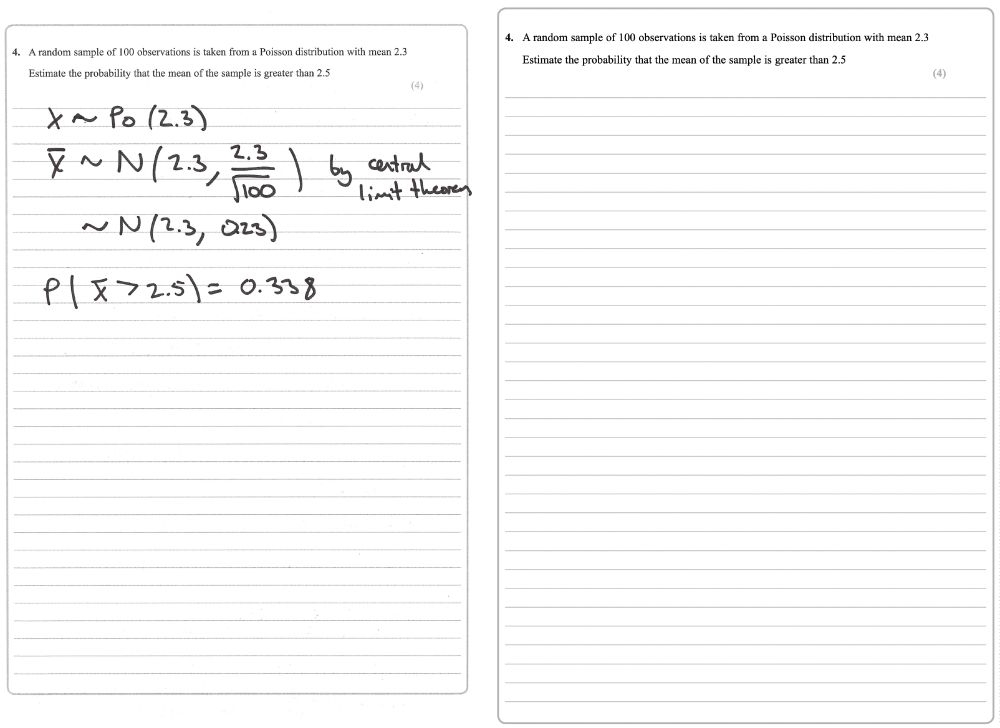 4. A random sample of 100 observations is taken from a Poisson distribution with mean 2.3
Estimate the probability that the mean of the sample is greater than 2.5
(4)
X ~ Po (2.3)
X̄ ~ N(2.3, 2.3/√100) by central limit theorem
~ N(2.3, 0.23)
P(X̄ > 2.5) = 0.338
4. A random sample of 100 observations is taken from a Poisson distribution with mean 2.3
Estimate the probability that the mean of the sample is greater than 2.5
(4)